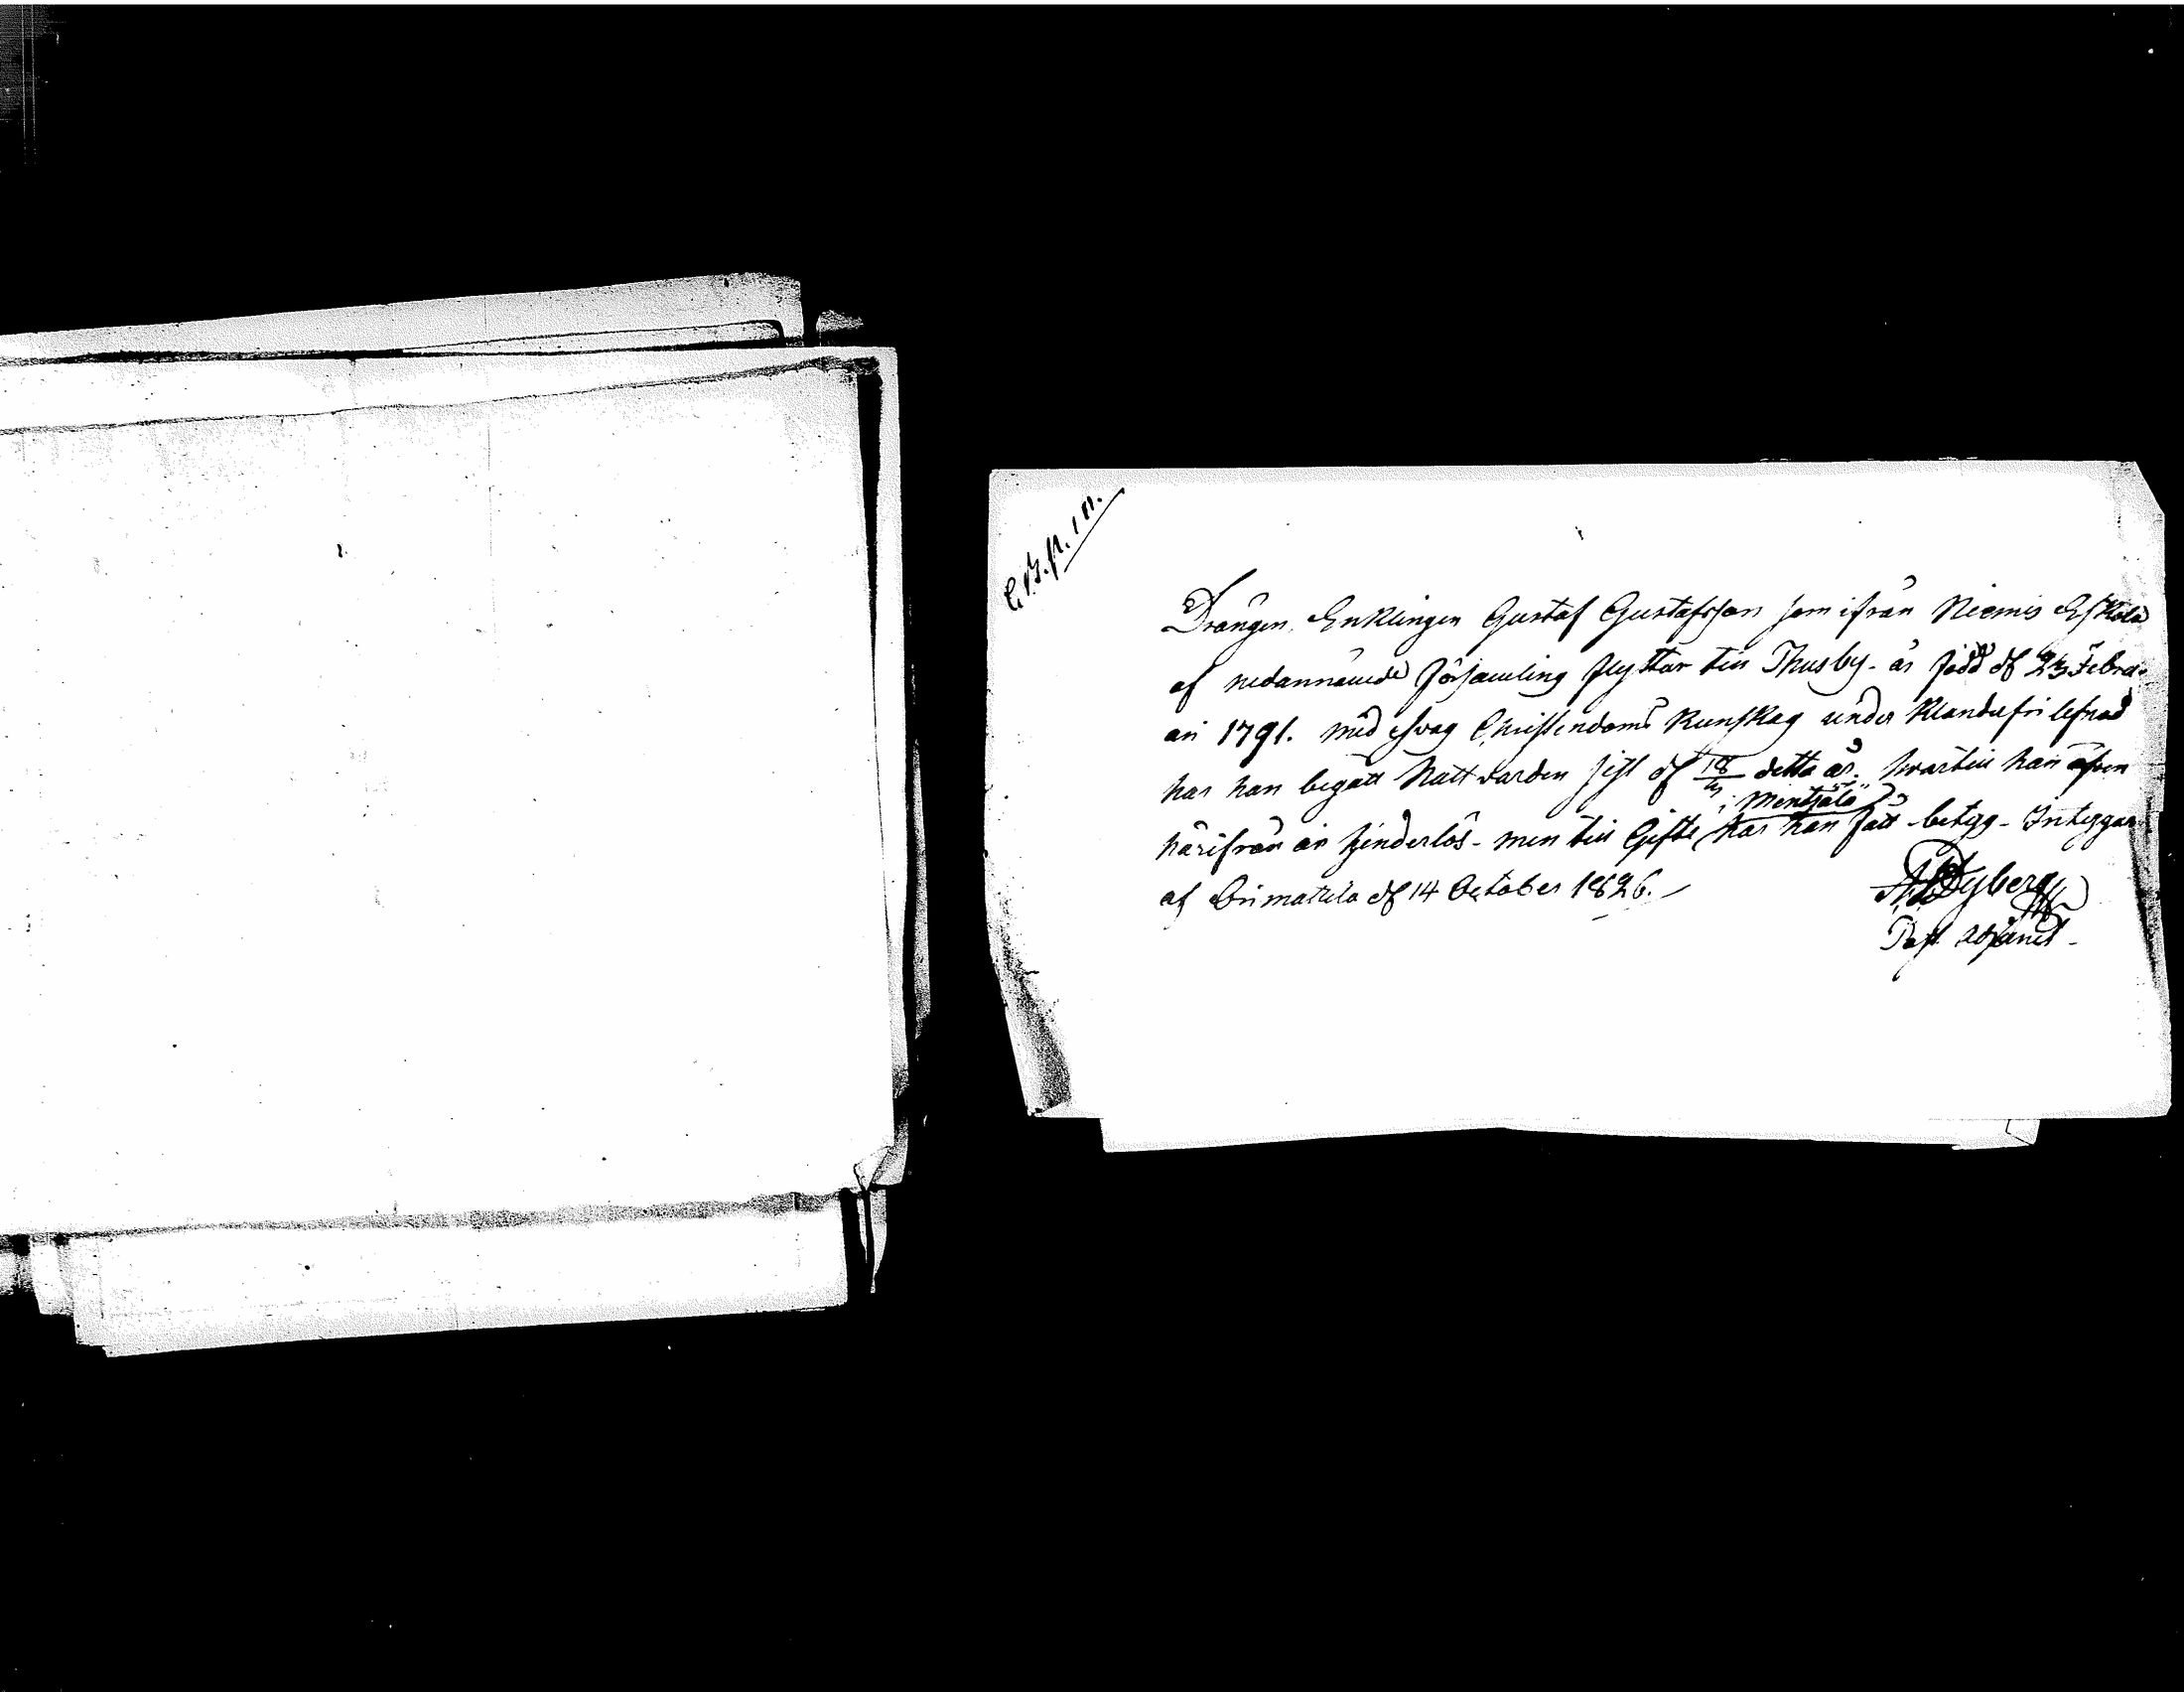 Drängen, Enklingen Gustaf Gustafsson som ifrån Niemis Eskola
af nedannämde församling flyttar till Thusby - är född d. 23 Febru-
ari 1791. med svag Christendoms Kunskap under Klanderfri lefnad
har han begått Nattvarden sist d. 18/6 detta år, hvartill han äfven
härifrån är hinderlös - men till Gifte har han i Mentsälä fått betyg - Intygar
af Orimattila d. 14 October 1826.
Dyberg
Past adjunct -